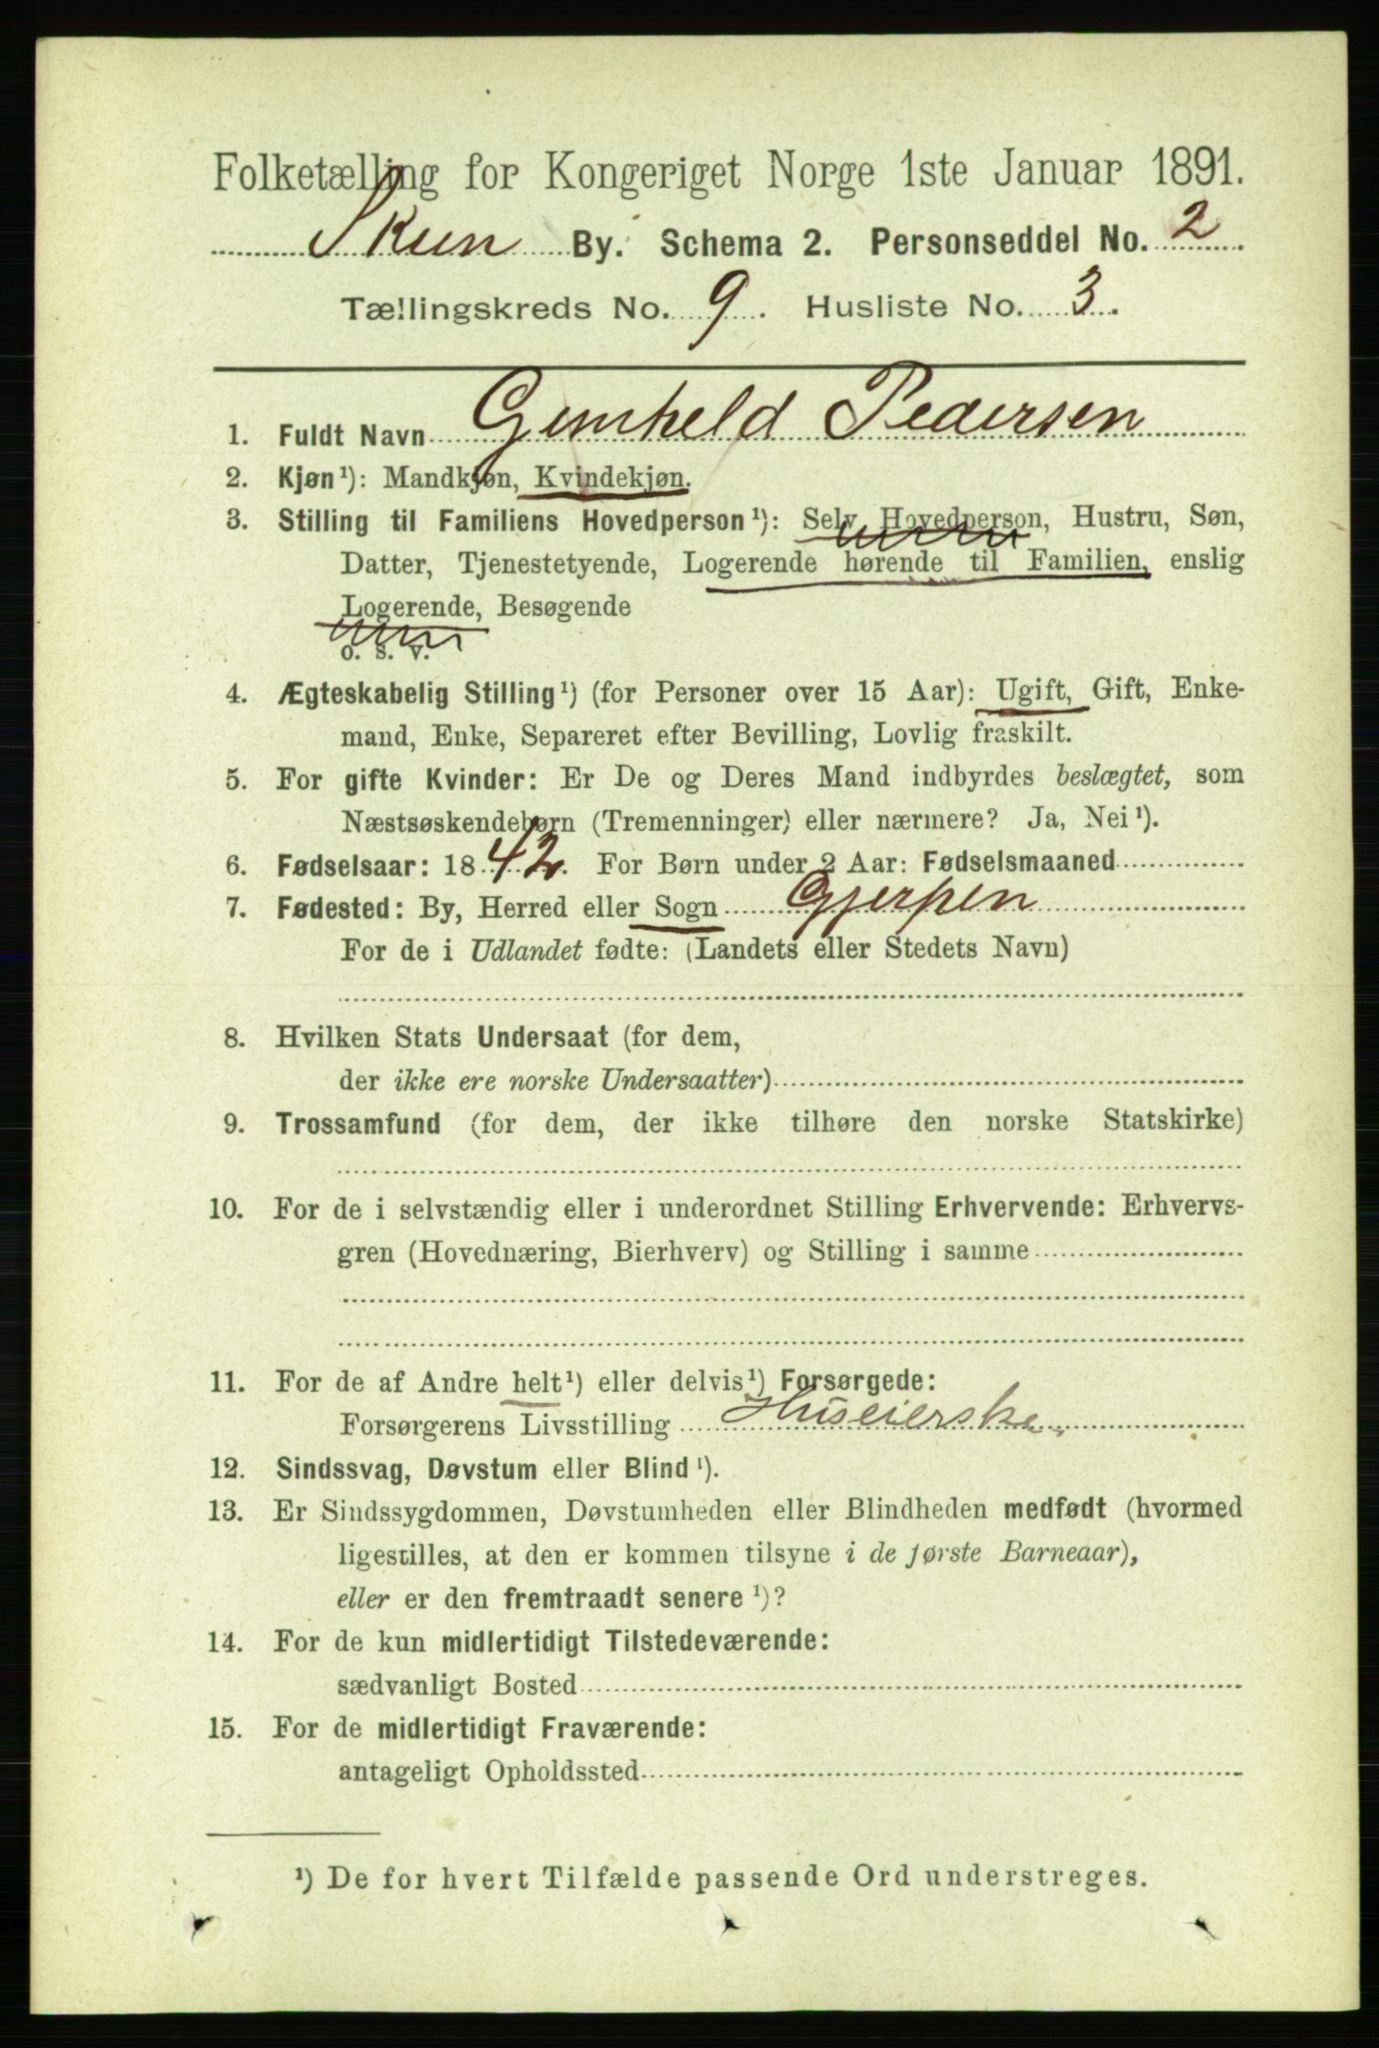 Folketælling for Kongeriget Norge 1ste Januar 1891.
Skien By. Schema 2. Personseddel No. 2
Tællingskreds No. 9. Husliste No. 3.
1. Fuldt Navn Gunheld Pedersen
2. Kjøn¹): Mandkjøn, Kvindekjøn.
3. Stilling til Familiens Hovedperson¹): Selv Hovedperson, Hustru, Søn,
Datter, Tjenestetyende, Logerende hørende til Familien, enslig
Logerende, Besøgende
o. s. v.
4. Ægteskabelig Stilling¹) (for Personer over 15 Aar): Ugift, Gift, Enke-
mand, Enke, Separeret efter Bevilling, Lovlig fraskilt.
5. For gifte Kvinder: Er De og Deres Mand indbyrdes beslægtet, som
Næstsøskendebørn (Tremenninger) eller nærmere? Ja, Nei¹).
6. Fødselsaar: 1842. For Børn under 2 Aar: Fødselsmaaned
7. Fødested: By, Herred eller Sogn Gjerpen
For de i Udlandet fødte: (Landets eller Stedets Navn)
8. Hvilken Stats Undersaat (for dem,
der ikke ere norske Undersaatter)
9. Trossamfund (for dem, der ikke tilhøre den norske Statskirke)
10. For de i selvstændig eller i underordnet Stilling Erhvervende: Erhvervs-
gren (Hovednæring, Bierhverv) og Stilling i samme
11. For de af Andre helt¹) eller delvis¹) Forsørgede:
Forsørgerens Livsstilling Huseierske.
12. Sindssvag, Døvstum eller Blind¹).
13. Er Sindssygdommen, Døvstumheden eller Blindheden medfødt (hvormed
ligestilles, at den er kommen tilsyne i de første Barneaar),
eller er den fremtraadt senere¹)?
14. For de kun midlertidigt Tilstedeværende:
sædvanligt Bosted
15. For de midlertidigt Fraværende:
antageligt Opholdssted
¹) De for hvert Tilfælde passende Ord understreges.